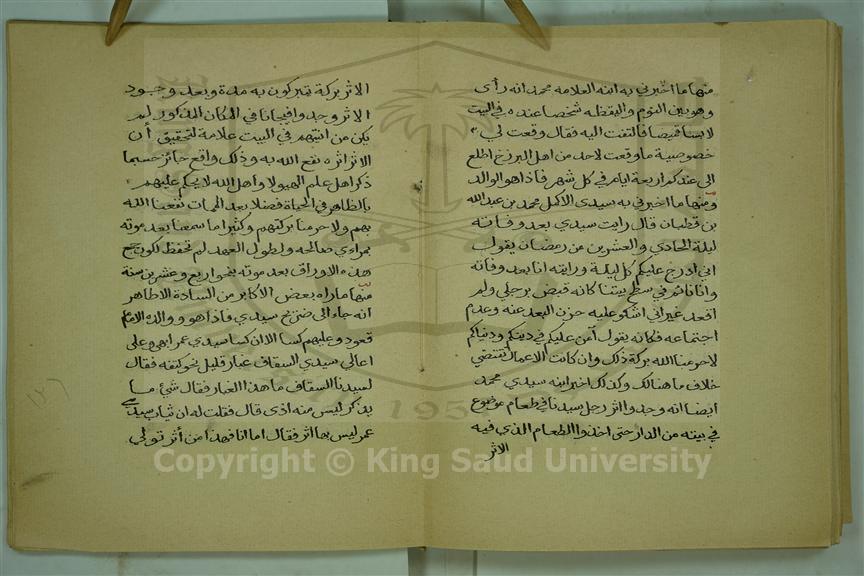 منها ما اخبرني به ابنه العلامه محمد انه رأى
وهو بين النوم واليقظه شخصا عنده في البيت
لابسا قميصا فالتفت اليه فقال وقعت لي
خصوصية ما وقعت لاحد من اهل البرزخ اطلع
الى عندكم اربعة ايام في كل شهر فاذا هو الوالد
ومنها ما اخبرني به سيدي الاكمل محمد بن عبدالله
بن قطبان قال رايت سيدي بعد وفاته
ليلة الحادي والعشرين من رمضان يقول
اني ادرج عليكم كل ليلة ورايته انا بعد وفاته
وانا نائم في سطح بيتنا كانه قبض برجلي ولم
اقعد غير اني اشكو عليه حزن البعد عنه وعدم
اجتماعه فكانه يقول آمن عليكم في دينكم ودنياكم
لاحرمنا الله بركة ذلك وان كانت الاعمال تقتضي
خلاف ما هنالك وكذلك اخبر ابنه سيدي محمد
ايضا انه وجدوا اثر رجل سيدنا في طعام موضوع
في بيته من الدار حتى اخذوا الطعام الذي فيه
الاثر
الاثر بركة يتبركون به مدة وبعد وجود
الاثر وجدوا فيجانا في المكان المذكور لم
يكن من انيتهم في البيت علامة لتحقيق أن
الاثر اثره نفع الله به وذلك واقع جائز حسبما
ذكر اهل علم الهيولا واهل الله لا يحكم عليهم
بالظاهر في الحياة فضلا بعد الممات نفعنا الله
بهم ولا حرمنا بركتهم وكثيرا ما سمعنا بعد موته
بمراءي صالحه ولطول العهد لم تحفظ لكون جمع
هذه الاوراق بعد موته بنحو اربع وعشرين سنة
منها ما راه بعض الاكابر من السادة الاطاهر
انه جاء الى ضريح سيدي فاذا هو ووالده الامام
قعود وعليهم كسا الا ان كسا سيدي عمر ابهى وعلى
اعالي سيدي السقاف غبار قليل نحو كتفه فقال
لسيدنا السقاف ما هذا الغبار فقال شيء ما
يذكر ليس منه اذى قال فقلت له ان ثياب سيدي
عمر ليس بها اثر فقال اما انا فهذا من أثر تولي
Copyright © King Saud University
195